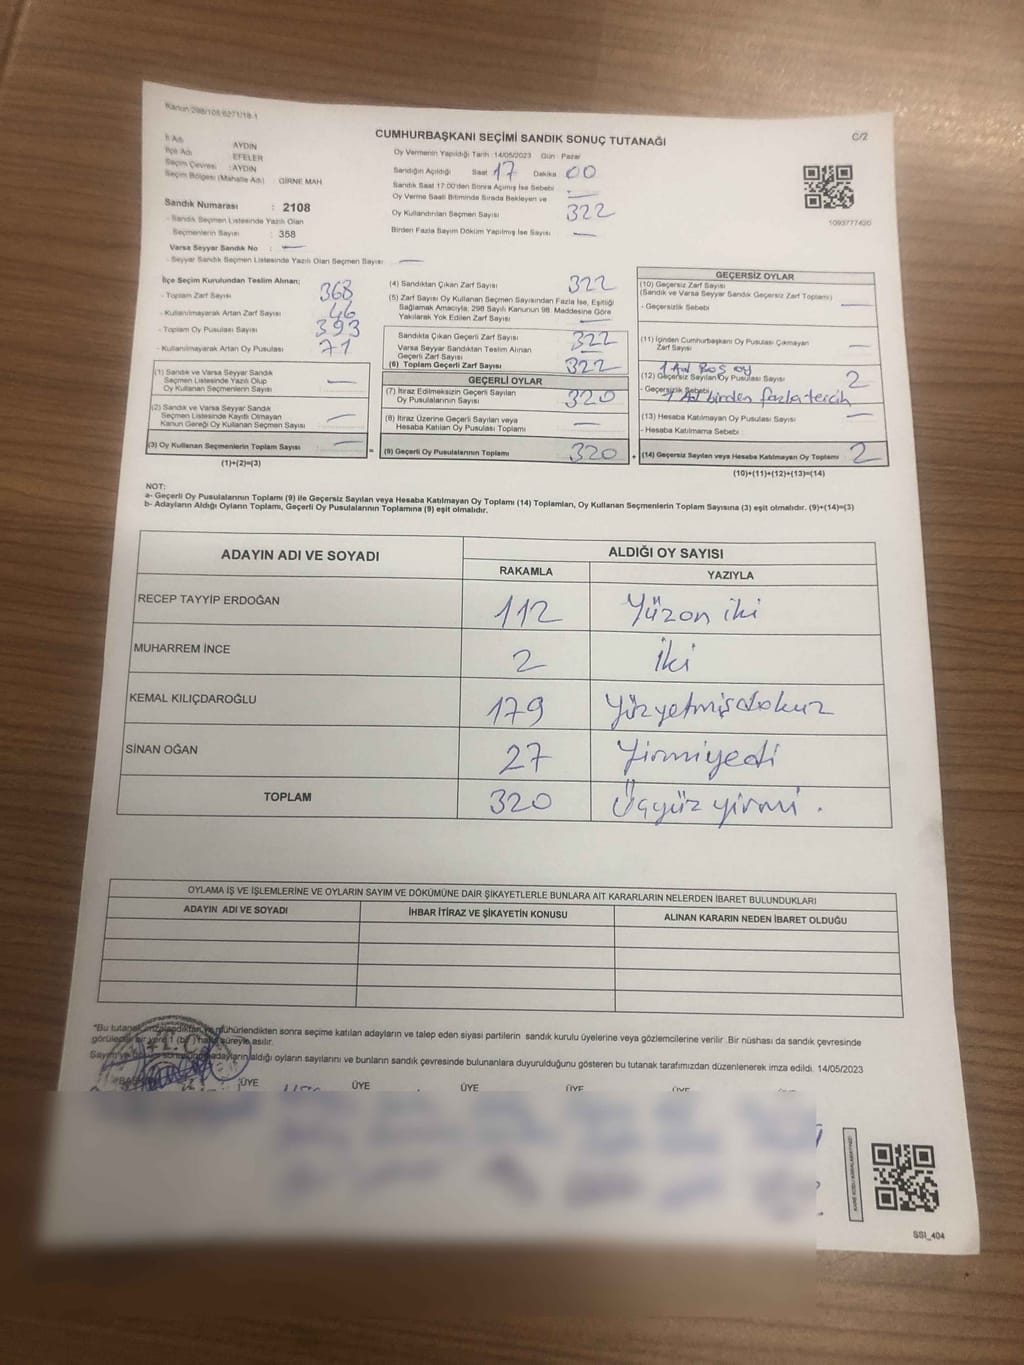 Kanun 298/105-6271/18-1
C/2
CUMHURBAŞKANI SEÇİMİ SANDIK SONUÇ TUTANAĞI
İl Adı AYDIN
İlçe Adı EFELER
Seçim Çevresi : AYDIN
Seçim Bölgesi (Mahalle Adı) : GİRNE MAH
Sandık Numarası : 2108
- Sandık Seçmen Listesinde Yazılı Olan
Seçmenlerin Sayısı : 358
Varsa Seyyar Sandık No : —
- Seyyar Sandık Seçmen Listesinde Yazılı Olan Seçmen Sayısı —
Oy Vermenin Yapıldığı Tarih :14/05/2023 Gün : Pazar
Sandığın Açıldığı Saat 17 Dakika 00
Sandık Saat 17:00'den Sonra Açılmış İse Sebebi —
Oy Verme Saati Bitiminde Sırada Bekleyen ve
Oy Kullandırılan Seçmen Sayısı 322
Birden Fazla Sayım Döküm Yapılmış İse Sayısı —
1093777420
İlçe Seçim Kurulundan Teslim Alınan;
- Toplam Zarf Sayısı 368
- Kullanılmayarak Artan Zarf Sayısı 46
- Toplam Oy Pusulası Sayısı 393
- Kullanılmayarak Artan Oy Pusulası 71
(1) Sandık ve Varsa Seyyar Sandık
Seçmen Listesinde Yazılı Olup
Oy Kullanan Seçmenlerin Sayısı —
(2) Sandık ve Varsa Seyyar Sandık
Seçmen Listesinde Kayıtlı Olmayan
Kanun Gereği Oy Kullanan Seçmen Sayısı —
(3) Oy Kullanan Seçmenlerin Toplam Sayısı —
(1)+(2)=(3)
(4) Sandıktan Çıkan Zarf Sayısı 322
(5) Zarf Sayısı Oy Kullanan Seçmen Sayısından Fazla İse, Eşitliği
Sağlamak Amacıyla, 298 Sayılı Kanunun 98. Maddesine Göre
Yakılarak Yok Edilen Zarf Sayısı —
Sandıkta Çıkan Geçerli Zarf Sayısı 322
Varsa Seyyar Sandıktan Teslim Alınan
Geçerli Zarf Sayısı —
(6) Toplam Geçerli Zarf Sayısı 322
GEÇERLİ OYLAR
(7) İtiraz Edilmeksizin Geçerli Sayılan
Oy Pusulalarının Sayısı 320
(8) İtiraz Üzerine Geçerli Sayılan veya
Hesaba Katılan Oy Pusulası Toplamı —
= (9) Geçerli Oy Pusulalarının Toplamı 320
GEÇERSİZ OYLAR
(10) Geçersiz Zarf Sayısı
(Sandık ve Varsa Seyyar Sandık Geçersiz Zarf Toplamı) —
- Geçersizlik Sebebi
(11) İçinden Cumhurbaşkanı Oy Pusulası Çıkmayan
Zarf Sayısı —
1 Ad Boş oy
(12) Geçersiz Sayılan Oy Pusulası Sayısı 2
- Geçersizlik Sebebi 1 Ad birden fazla tercih
(13) Hesaba Katılmayan Oy Pusulası Sayısı —
- Hesaba Katılmama Sebebi
+ (14) Geçersiz Sayılan veya Hesaba Katılmayan Oy Toplamı 2
(10)+(11)+(12)+(13)=(14)
NOT:
a- Geçerli Oy Pusulalarının Toplamı (9) ile Geçersiz Sayılan veya Hesaba Katılmayan Oy Toplamı (14) Toplamları, Oy Kullanan Seçmenlerin Toplam Sayısına (3) eşit olmalıdır. (9)+(14)=(3)
b- Adayların Aldığı Oyların Toplamı, Geçerli Oy Pusulalarının Toplamına (9) eşit olmalıdır.
ADAYIN ADI VE SOYADI ALDIĞI OY SAYISI
RAKAMLA YAZIYLA
RECEP TAYYİP ERDOĞAN 112 Yüzon iki
MUHARREM İNCE 2 İki
KEMAL KILIÇDAROĞLU 179 Yüzyetmişdokuz
SİNAN OĞAN 27 Yirmiyedi
TOPLAM 320 Üçyüz yirmi .
OYLAMA İŞ VE İŞLEMLERİNE VE OYLARIN SAYIM VE DÖKÜMÜNE DAİR ŞİKAYETLERLE BUNLARA AİT KARARLARIN NELERDEN İBARET BULUNDUKLARI
ADAYIN ADI VE SOYADI İHBAR İTİRAZ VE ŞİKAYETİN KONUSU ALINAN KARARIN NEDEN İBARET OLDUĞU
"Bu tutanak imzalandıktan ve mühürlendikten sonra seçime katılan adayların ve talep eden siyasi partilerin sandık kurulu üyelerine veya gözlemcilerine verilir. Bir nüshası da sandık çevresinde
görülecek bir yere 1 (bir) hafta süreyle asılır.
adayların aldığı oyların sayılarını ve bunların sandık çevresinde bulunanlara duyurulduğunu gösteren bu tutanak tarafımızdan düzenlenerek imza edildi. 14/05/2023
ÜYE ÜYE ÜYE ÜYE ÜYE
SSI_404